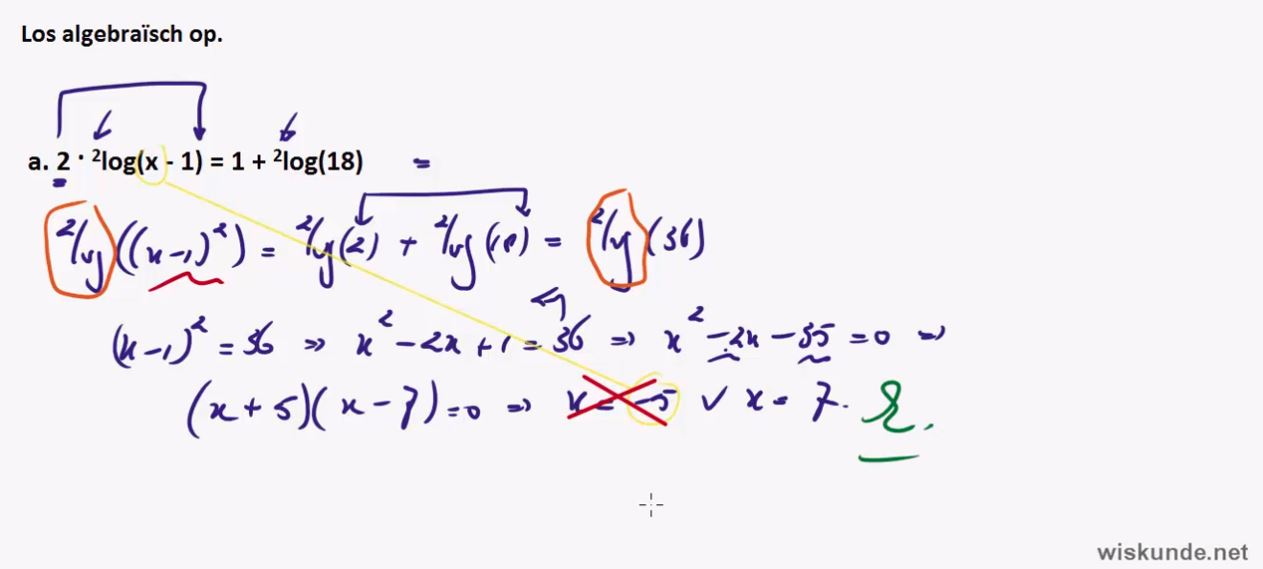 Los algebraïsch op.
a. 2 · ²log(x - 1) = 1 + ²log(18)
²log((x-1)²) = ²log(2) + ²log(18) = ²log(36)
(x-1)² = 36 => x² - 2x + 1 = 36 => x² - 2x - 35 = 0 =>
(x+5)(x-7) = 0 => x = -5 ∨ x = 7.
wiskunde.net